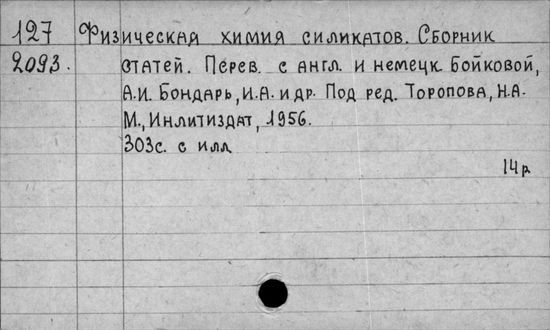 127 Физическая химия силикатов. Сборник
2093. статей. Перев. с англ. и немецк. Бойковой,
А.И. Бондарь, И.А. и др. Под ред. Торопова, Н.А.
М., Инлитиздат, 1956.
303с. с илл
14р